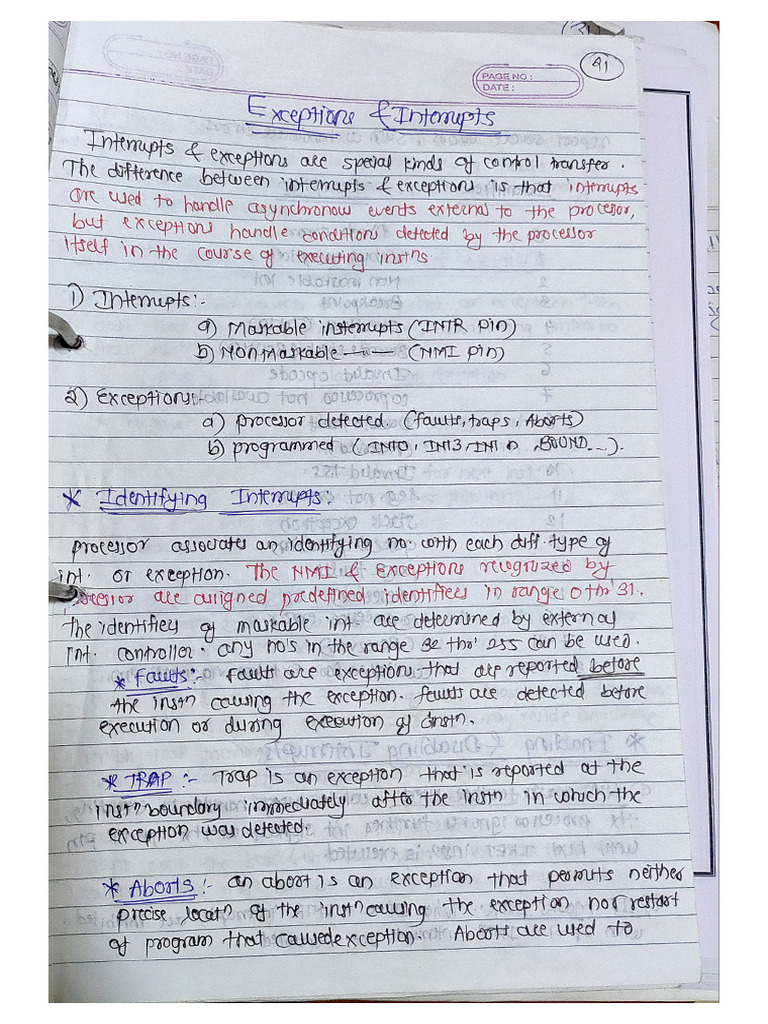 PAGE NO :
DATE :
41
Exceptions & Interrupts
Interrupts & exceptions are special kinds of control transfer.
The difference between interrupts & exceptions is that interrupts
are used to handle asynchronous events external to the processor,
but exceptions handle conditions detected by the processor
itself in the course of executing instns.
1) Interrupts:-
a) Maskable insterrupts (INTR pin)
b) Non Maskable —〃— (NMI pin)
2) Exceptions:-
a) processor detected. (faults, traps, Aborts)
b) programmed (INTO, INT3, INT n, BOUND...).
* Identifying Interrupts:
processor associates an identifying no. with each diff. type of
int. or exception. The NMI & exceptions recognized by
processor are assigned predefined identifies in range 0 thr' 31.
The identifies of maskable int. are determined by external
int. controller. any no's in the range 32 thr' 255 can be used.
* Faults:- faults are exceptions that are reported before
the instn causing the exception. faults are detected before
execution or during execution of instn.
* TRAP :- Trap is an exception that is reported at the
instn boundary immediately after the instn in which the
exception was detected.
* Aborts :- an abort is an exception that permits neither
precise locatn of the instn causing the exception nor restart
of program that caused exception. Aborts are used to